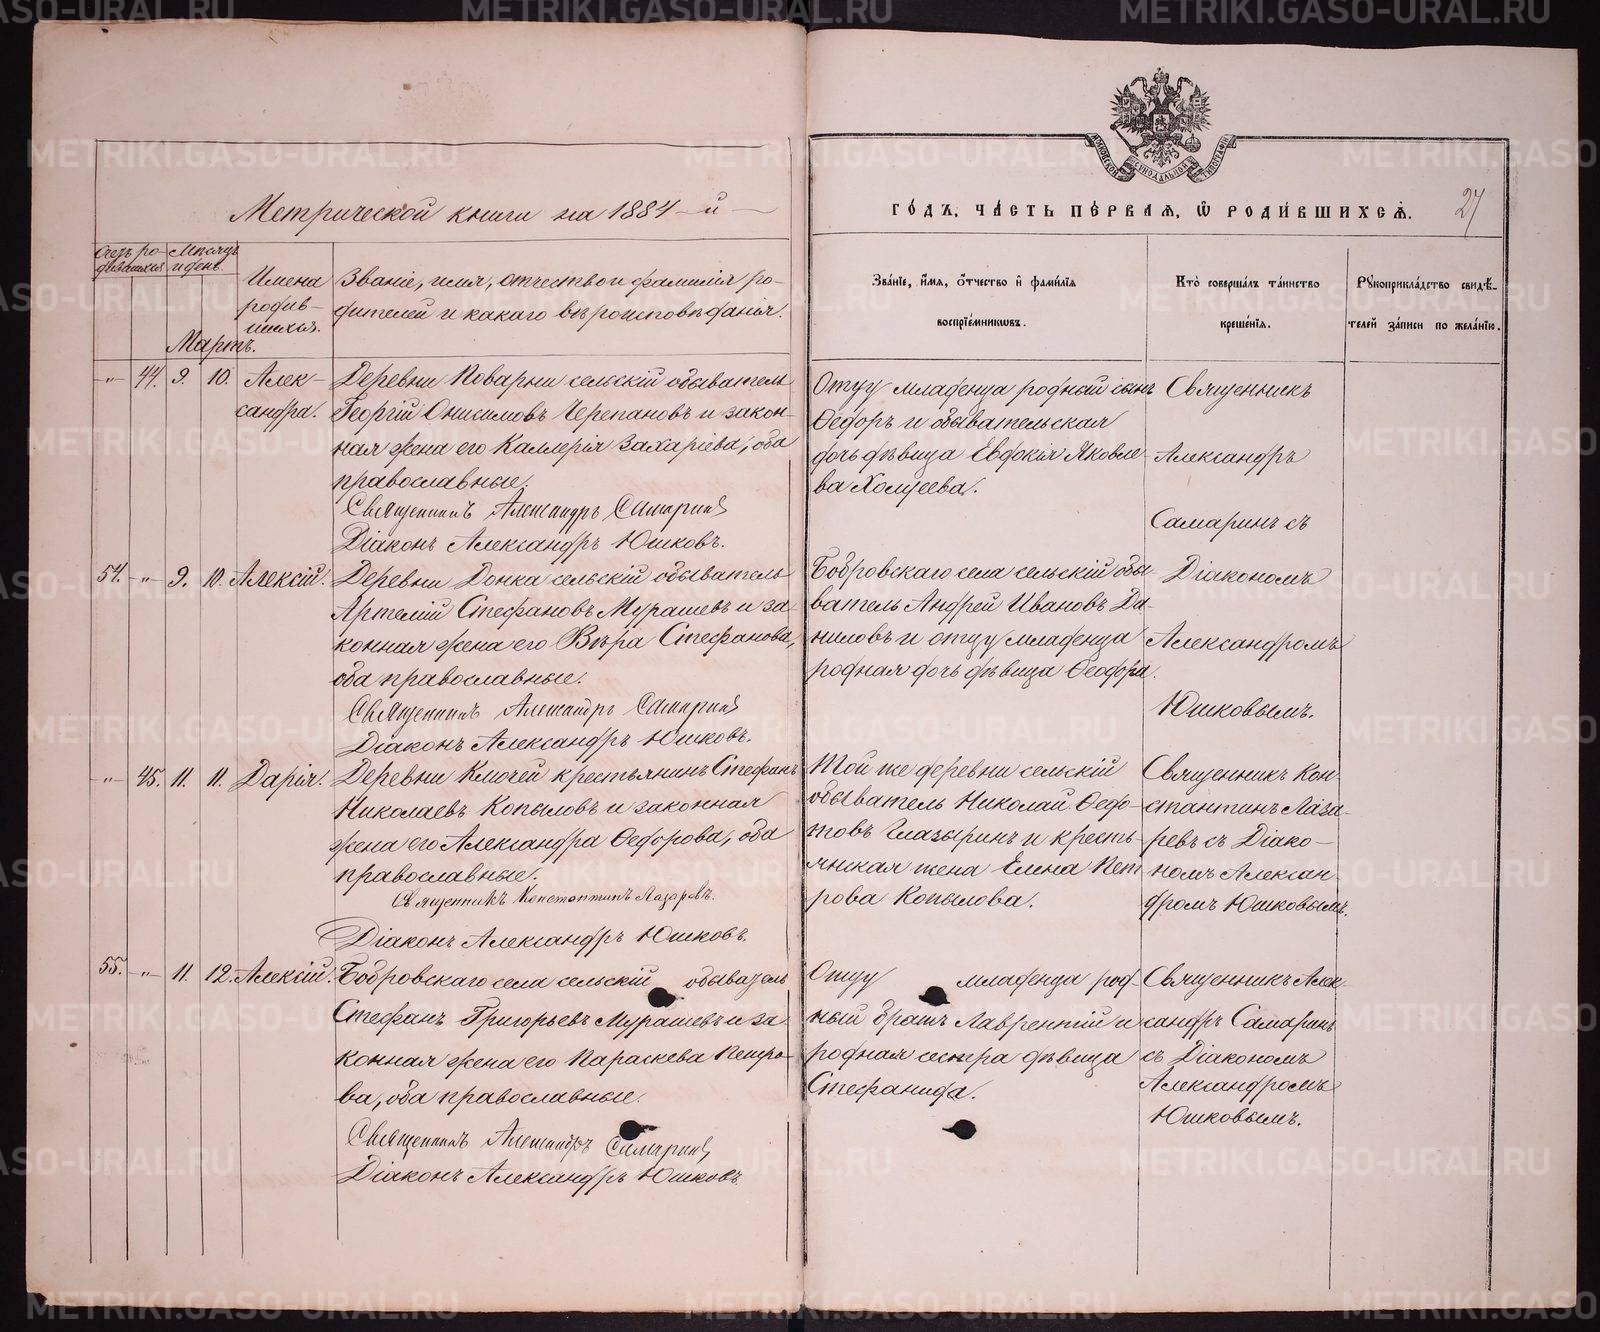 Метрической книги на 1884-й
Счетъ ро-
дившихся
Мѣсяцъ
и день.
Мартъ.
Имена
родив-
шихся.
Званіе, имя, отчество и фамилія ро-
дителей и какаго вѣроисповѣданія.
МОСКОВСКОЙ СИНОДАЛЬНОЙ ТИПОГРАФІИ
ГО́ДЪ, ЧА́СТЬ ПЕ́РВАЯ, Ѡ҆ РОДИ́ВШИХСѦ.
27
Зва́нїе, и҆́мя, ѻ҆́тчество и҆ фами́лїя
воспрїе́мникѡвъ.
Кто̀ соверша́лъ та́инство
креще́нїя.
Рꙋкоприкла́дство свидѣ́-
телей за́писи по жела́нїю.
-"- 44. 9. 10. Алек-
сандра.
Деревни Поварни сельскій обыватель
Георгій Онисимовъ Черепановъ и закон-
ная жена его Каллерія Захаріева, оба
православные.
Священникъ Александръ Самаринъ
Діаконъ Александръ Юшковъ.
Отцу младенца родный сынъ
Ѳедоръ и обывательская
дочь дѣвица Евдокія Яковле-
ва Холуеева.
Священникъ
Александръ
Самаринъ съ
54. -"- 9. 10. Алексій.
Деревни Донка сельскій обыватель
Артемій Стефановъ Мурашевъ и за-
конная жена его Вѣра Стефанова,
оба православные.
Священникъ Александръ Самаринъ
Діаконъ Александръ Юшковъ.
Бобровскаго села сельскій обы-
ватель Андрей Ивановъ Да-
ниловъ и отцу младенца
родная дочь дѣвица Ѳеодора.
Діакономъ
Александромъ
Юшковымъ.
-"- 45. 11. 11. Дарія.
Деревни Ключей крестьянинъ Стефанъ
Николаевъ Копыловъ и законная
жена его Александра Ѳедорова, оба
православные.
Священникъ Константинъ Лазаревъ.
Діаконъ Александръ Юшковъ.
Той же деревни сельскій
обыватель Николай Ѳедо-
товъ Глазыринъ и кресть-
янская жена Елена Пет-
рова Копылова.
Священникъ Кон-
стантинъ Лаза-
ревъ съ Діако-
номъ Алексан-
дромъ Юшковымъ.
55. -"- 11. 12. Алексій.
Бобровскаго села сельскій обыватель
Стефанъ Григорьевъ Мурашевъ и за-
конная жена его Параскева Петро-
ва, оба православные.
Священникъ Александръ Самаринъ
Діаконъ Александръ Юшковъ
Отцу младенца род-
ный братъ Лаврентій и
родная сестра дѣвица
Стефанида.
Священникъ Алек-
сандръ Самаринъ
съ Діакономъ
Александромъ
Юшковымъ.
METRIKI.GASO-URAL.RU